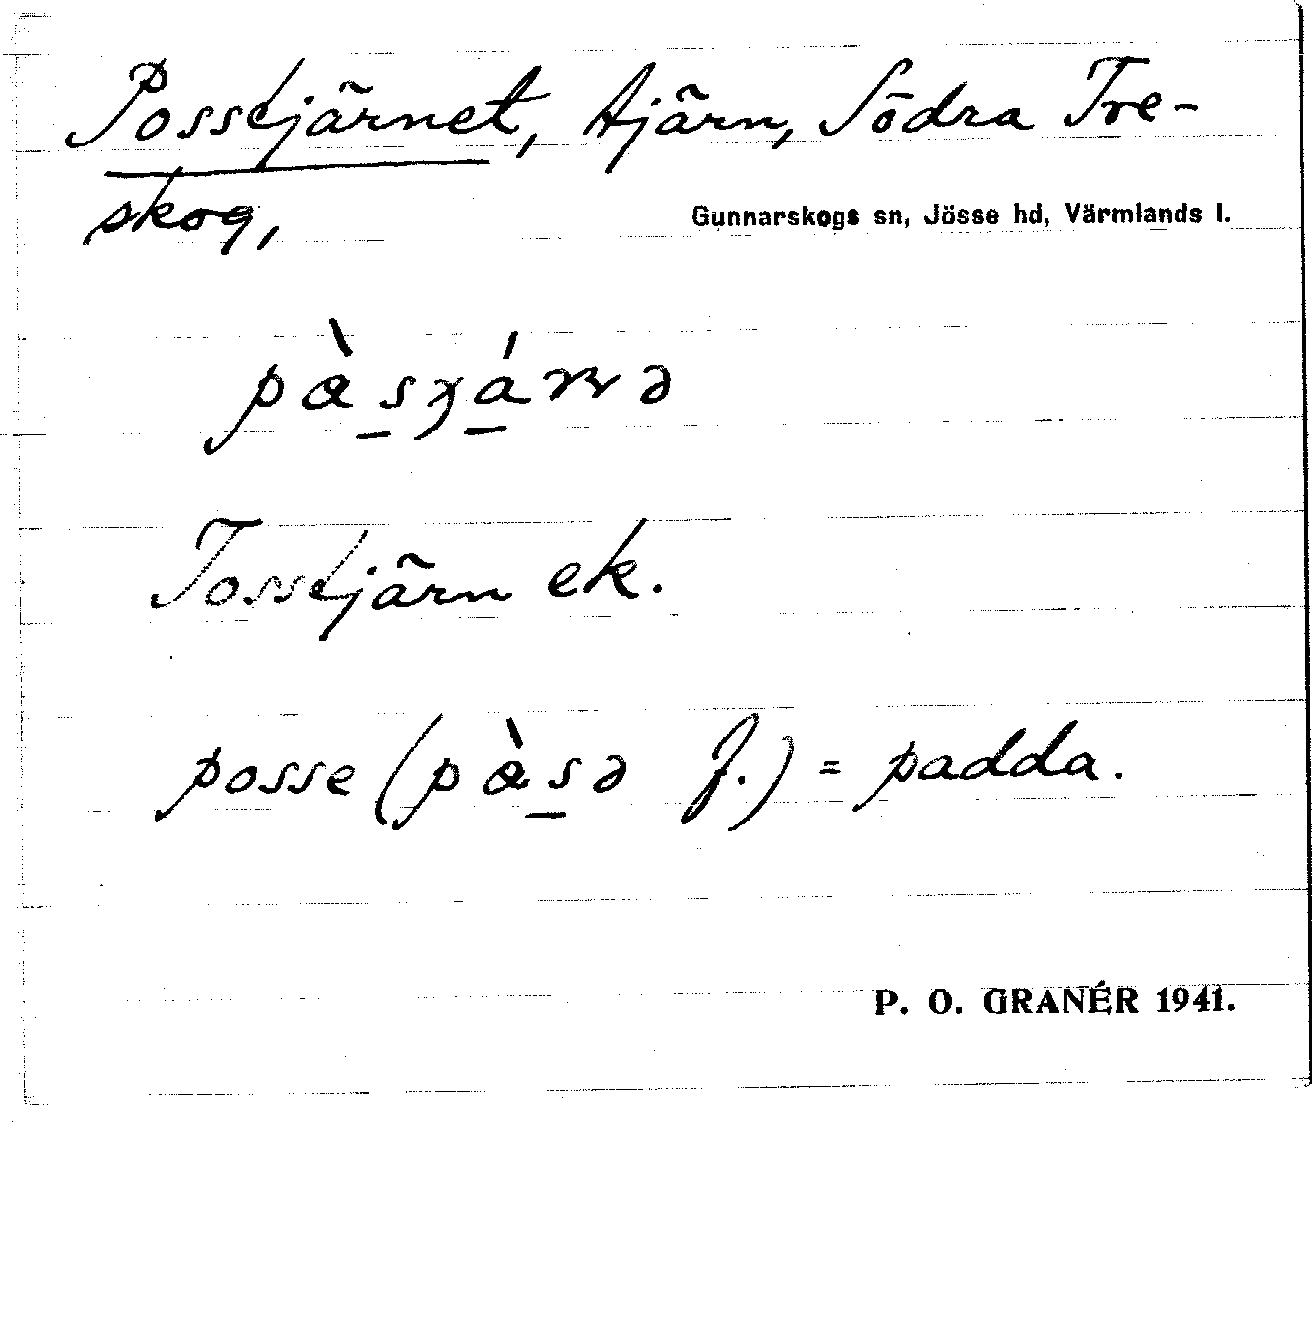 Posstjärnet, tjärn, Södra Tre-
skog,
Gunnarskogs sn, Jösse hd, Värmlands l.
Tosstjärn ek.
posse (pàsə f.) = padda.
P. O. GRANÉR 1941.